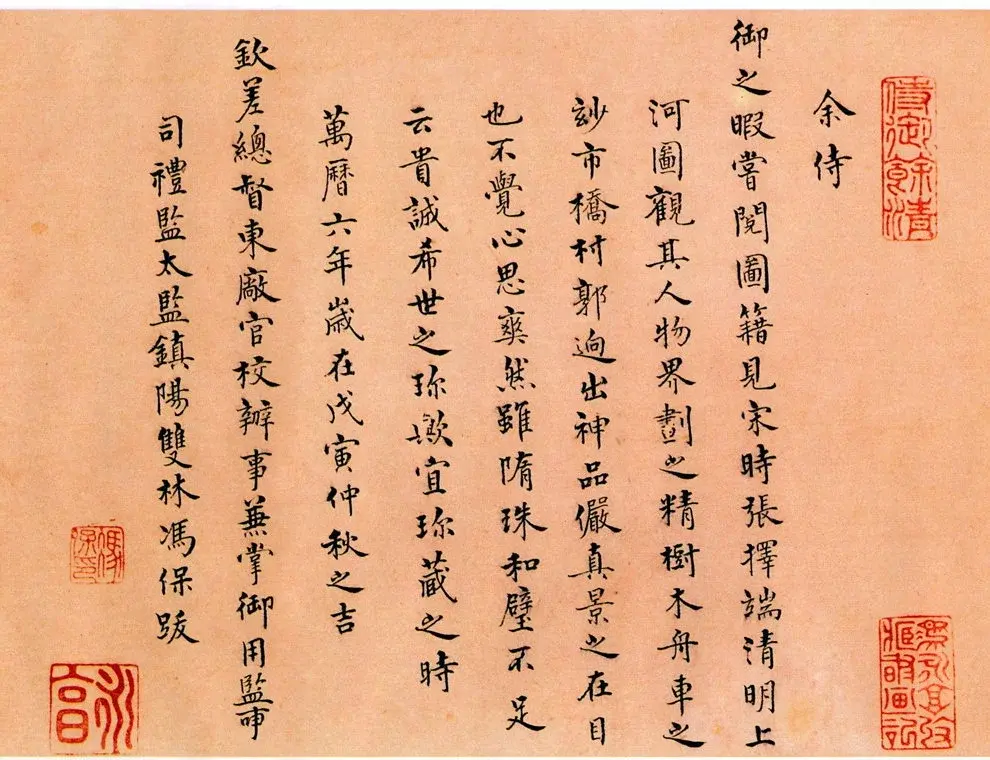 余侍
御之暇嘗閱圖籍見宋時張擇端清明上
河圖觀其人物界劃之精樹木舟車之
妙市橋村郭逈出神品儼真景之在目
也不覺心思爽然雖隋珠和璧不足
云貴誠希世之珎歟宜珎藏之時
萬曆六年歲在戊寅仲秋之吉
欽差總督東廠官校辦事兼掌御用監事
司禮監太監鎮陽雙林馮保跋
侍御餘清
馮保